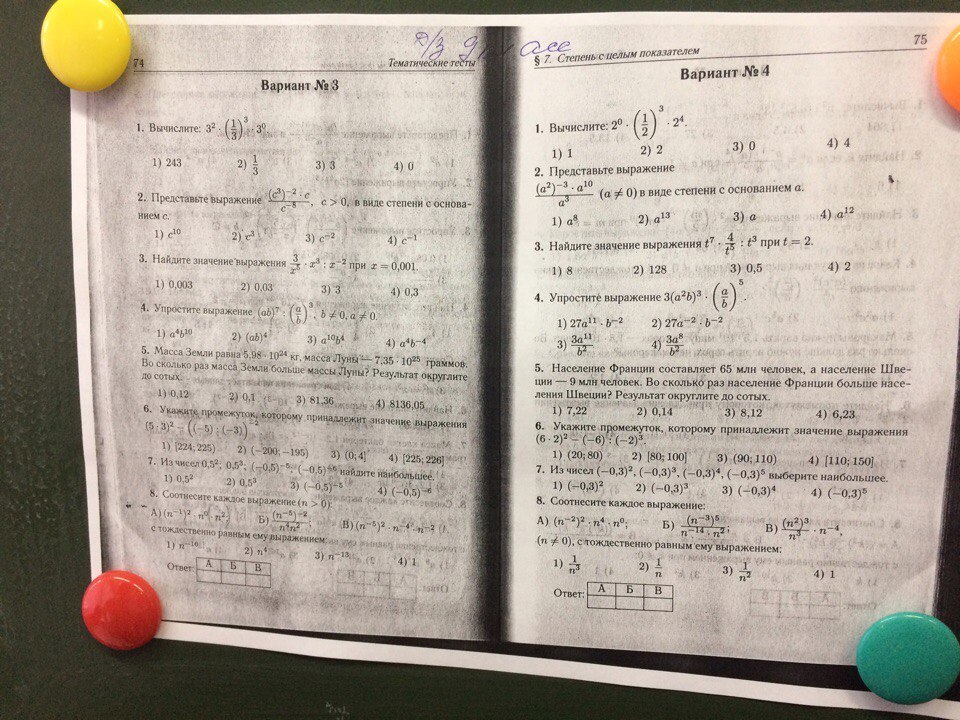 74
Тематические тесты
Вариант № 3
1. Вычислите: 3² · (1/3)³ · 3⁰
1) 243 2) 1/3 3) 3 4) 0
2. Представьте выражение ((c³)⁻² · c)/c⁻⁸, c > 0, в виде степени с основа-
нием c.
1) c¹⁰ 2) c³ 3) c⁻² 4) c⁻¹
3. Найдите значение выражения 3/x⁵ · x³ : x⁻² при x = 0,001.
1) 0,003 2) 0,03 3) 3 4) 0,3
4. Упростите выражение (ab)⁷ · (a/b)³, b ≠ 0, a ≠ 0.
1) a⁴b¹⁰ 2) (ab)⁴ 3) a¹⁰b⁴ 4) a⁴b⁻⁴
5. Масса Земли равна 5,98 · 10²⁴ кг, масса Луны — 7,35 · 10²⁵ граммов.
Во сколько раз масса Земли больше массы Луны? Результат округлите
до сотых.
1) 0,12 2) 0,1 3) 81,36 4) 8136,05
6. Укажите промежуток, которому принадлежит значение выражения
(5 · 3)² − ((−5) · (−3))⁻²
1) [224; 225) 2) (−200; −195) 3) (0; 4] 4) [225; 226]
7. Из чисел 0,5²; 0,5³, (−0,5)⁻⁵, (−0,5)⁻⁶ найдите наибольшее.
1) 0,5² 2) 0,5³ 3) (−0,5)⁻⁵ 4) (−0,5)⁻⁶
8. Соотнесите каждое выражение (n > 0):
А) (n⁻¹)² · n⁰ · n²; Б) (n⁻⁵)⁻²/n⁴n²; В) (n⁻⁵)² · n⁻⁴ · n⁻²
с тождественно равным ему выражением:
1) n⁻¹⁶ 2) n⁴ 3) n⁻¹³ 4) 1
Ответ: А Б В
§ 7. Степень с целым показателем
75
Вариант № 4
1. Вычислите: 2⁰ · (1/2)³ · 2⁴.
1) 1 2) 2 3) 0 4) 4
2. Представьте выражение
((a²)⁻³ · a¹⁰)/a³ (a ≠ 0) в виде степени с основанием a.
1) a⁸ 2) a¹³ 3) a 4) a¹²
3. Найдите значение выражения t⁷ · 4/t⁵ : t³ при t = 2.
1) 8 2) 128 3) 0,5 4) 2
4. Упростите выражение 3(a²b)³ · (a/b)⁵.
1) 27a¹¹ · b⁻² 2) 27a⁻² · b⁻²
3) 3a¹¹/b² 4) 3a⁸/b²
5. Население Франции составляет 65 млн человек, а население Шве-
ции — 9 млн человек. Во сколько раз население Франции больше насе-
ления Швеции? Результат округлите до сотых.
1) 7,22 2) 0,14 3) 8,12 4) 6,23
6. Укажите промежуток, которому принадлежит значение выражения
(6 · 2)² − (−6) : (−2)³.
1) (20; 80) 2) [80; 100] 3) (90; 110) 4) [110; 150]
7. Из чисел (−0,3)², (−0,3)³, (−0,3)⁴, (−0,3)⁵ выберите наибольшее.
1) (−0,3)² 2) (−0,3)³ 3) (−0,3)⁴ 4) (−0,3)⁵
8. Соотнесите каждое выражение:
А) (n⁻²)² · n⁴ · n⁰; Б) (n⁻³)⁵/(n⁻¹⁴ · n²); В) (n²)³/n³ · n⁻⁴,
(n ≠ 0), с тождественно равным ему выражением:
1) 1/n³ 2) 1/n 3) 1/n² 4) 1
Ответ: А Б В